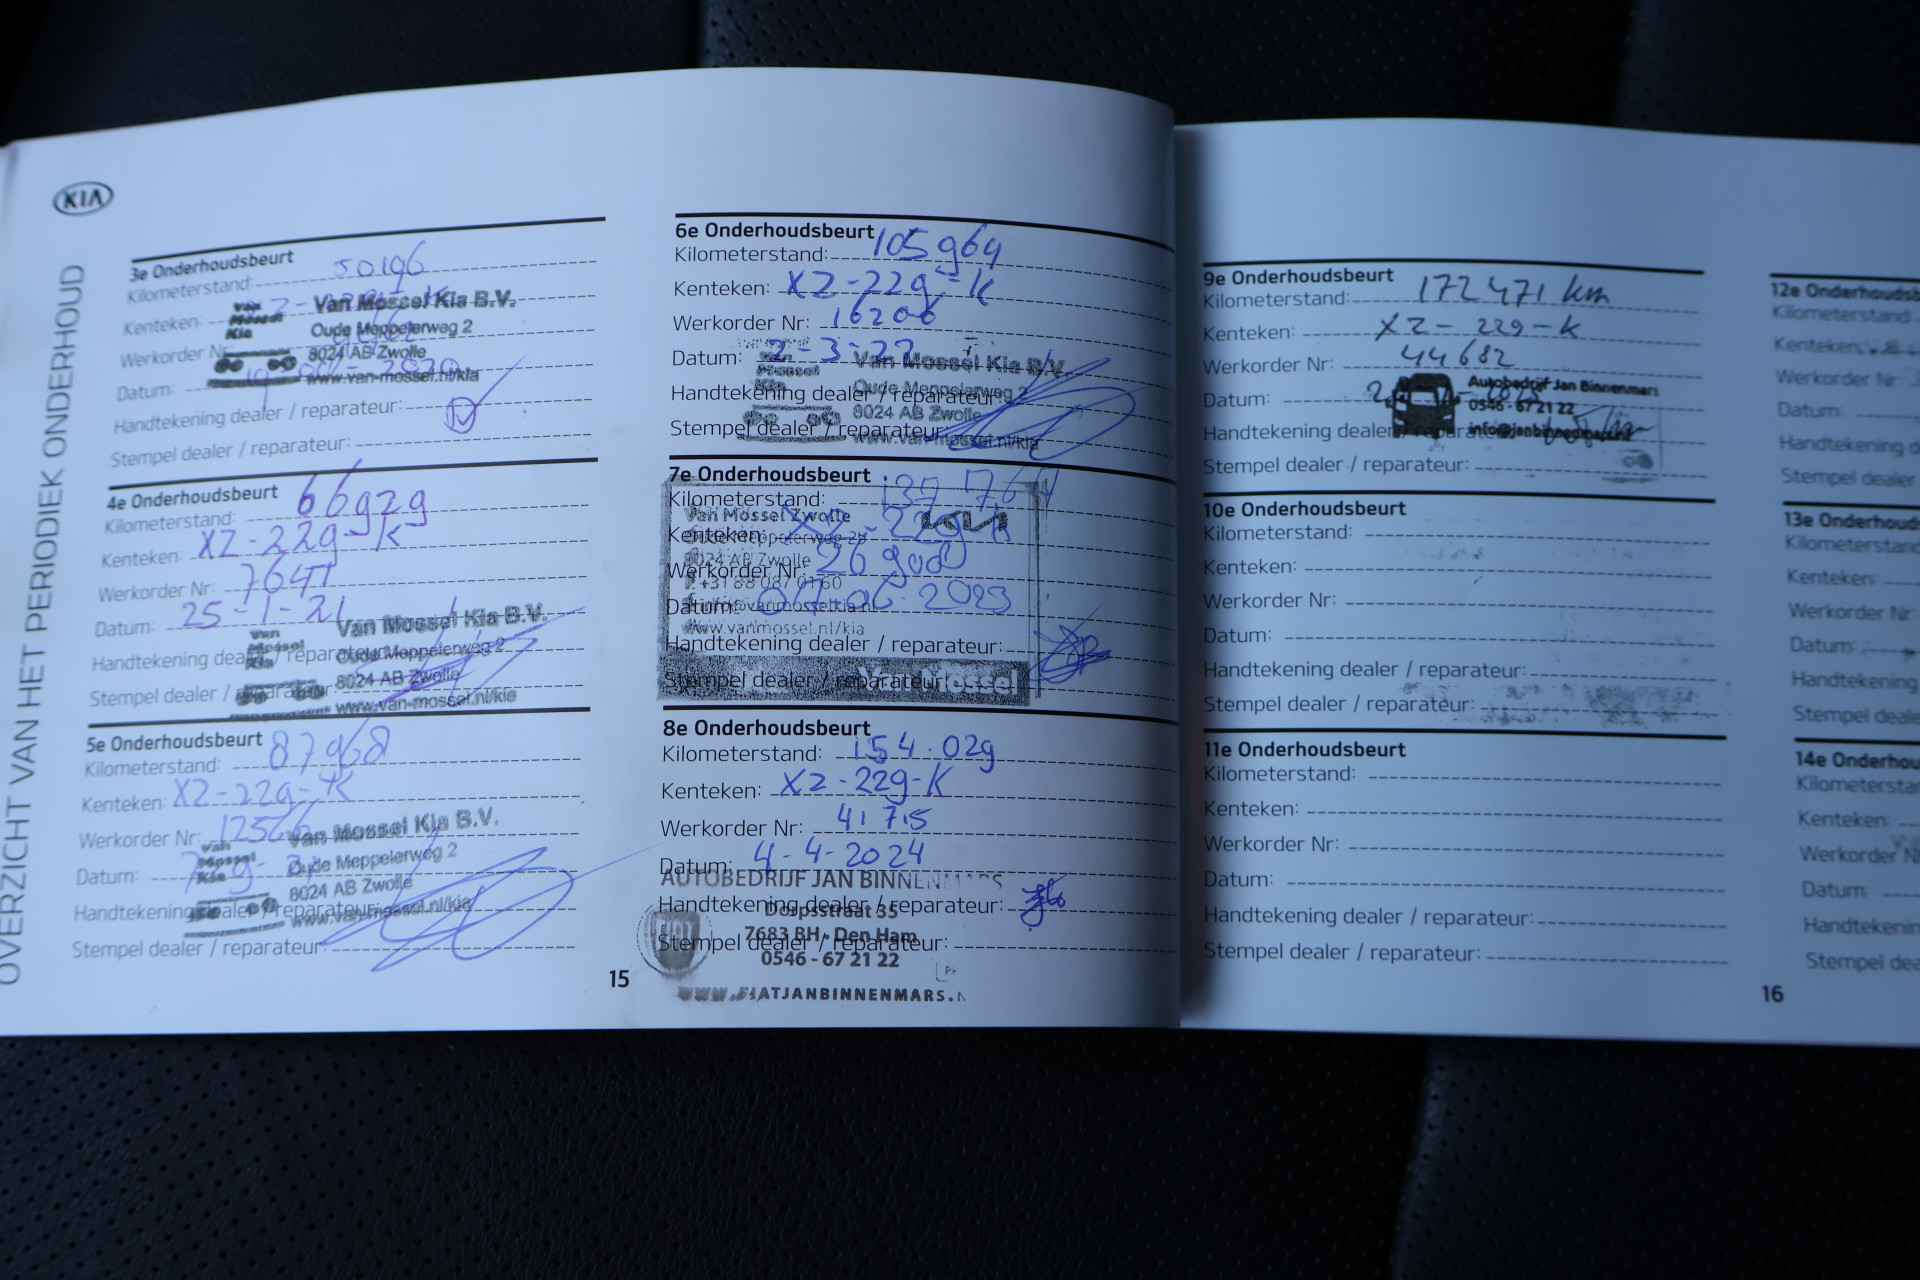 KIA
OVERZICHT VAN HET PERIODIEK ONDERHOUD
3e Onderhoudsbeurt
Kilometerstand: 50196
Kenteken:
Van Mossel Kia
Van Mossel Kia B.V.
Oude Meppelerweg 2
Werkorder Nr
8024 AB Zwolle
Datum:
www.van-mossel.nl/kia
Handtekening dealer / reparateur:
Stempel dealer / reparateur:
4e Onderhoudsbeurt
Kilometerstand: 66929
Kenteken: XZ-229-K
Werkorder Nr:
Datum: 25-1-21
Van Mossel Kia
Van Mossel Kia B.V.
Handtekening dealer / reparateur:
Oude Meppelerweg 2
8024 AB Zwolle
Stempel dealer / reparateur:
www.van-mossel.nl/kia
5e Onderhoudsbeurt
Kilometerstand: 87968
Kenteken: XZ-229-K
Werkorder Nr: 12566
Van Mossel Kia
Van Mossel Kia B.V.
Oude Meppelerweg 2
Datum:
8024 AB Zwolle
Handtekening dealer / reparateur:
www.van-mossel.nl/kia
Stempel dealer / reparateur:
15
6e Onderhoudsbeurt
Kilometerstand: 105964
Kenteken: XZ-229-K
Werkorder Nr: 16206
Datum: 2-3-22
Van Mossel Kia
Van Mossel Kia B.V.
Handtekening dealer / reparateur:
Oude Meppelerweg 2
8024 AB Zwolle
Stempel dealer / reparateur:
www.van-mossel.nl/kia
7e Onderhoudsbeurt
Kilometerstand: 137764
Van Mossel Zwolle
KIA
Kenteken: XZ-229-K
8024 AB Zwolle
Werkorder Nr:
+31 88 087 01 60
Datum: 2023
info@vanmosselkia.nl
www.vanmossel.nl/kia
Handtekening dealer / reparateur:
Stempel dealer / reparateur:
Van Mossel
8e Onderhoudsbeurt
Kilometerstand: 154.029
Kenteken: XZ-229-K
Werkorder Nr: 41715
Datum: 4-4-2024
AUTOBEDRIJF JAN BINNENMARS
Handtekening dealer / reparateur:
Dorpsstraat 35
7683 BH - Den Ham
Stempel dealer / reparateur:
0546 - 67 21 22
FIAT
WWW.FIATJANBINNENMARS.N
9e Onderhoudsbeurt
Kilometerstand: 172471 km
Kenteken: XZ-229-K
Werkorder Nr: 44682
Datum:
Autobedrijf Jan Binnenmars
0546 - 67 21 22
Handtekening dealer / reparateur:
info@janbinnenmars.nl
Stempel dealer / reparateur:
10e Onderhoudsbeurt
Kilometerstand:
Kenteken:
Werkorder Nr:
Datum:
Handtekening dealer / reparateur:
Stempel dealer / reparateur:
11e Onderhoudsbeurt
Kilometerstand:
Kenteken:
Werkorder Nr:
Datum:
Handtekening dealer / reparateur:
Stempel dealer / reparateur:
16
12e Onderhoudsb
Kilometerstand
Kenteken:
Werkorder Nr
Datum:
Handtekening d
Stempel dealer
13e Onderhouds
Kilometerstand
Kenteken:
Werkorder Nr:
Datum:
Handtekening
Stempel deale
14e Onderhou
Kilometerstar
Kenteken:
Werkorder N
Datum:
Handtekenin
Stempel dea